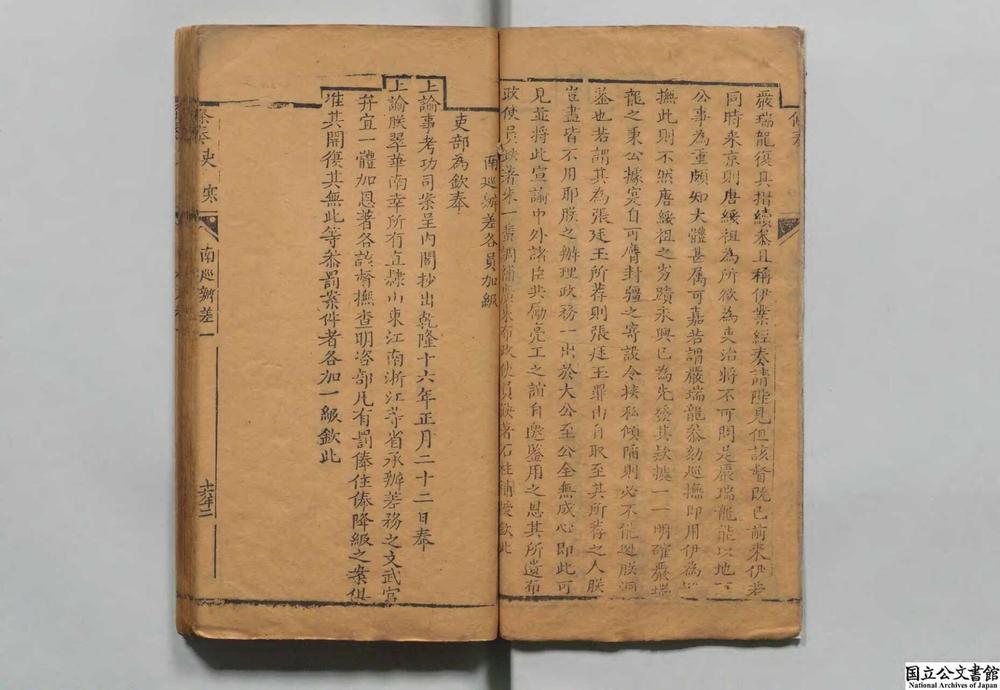 條奏
嚴瑞龍復具摺續叅且稱伊業經奏請陛見但該督既已前來伊若
同時來京則唐綏祖為所欲為吏治將不可問是嚴瑞龍能以地方
公事為重頗知大體甚屬可嘉若謂嚴瑞龍叅劾巡撫即用伊為
撫此則不然唐綏祖之劣蹟永興已為先發其款據一一明確嚴瑞
龍之秉公據寔自可膺封疆之寄設令挾私傾陷則必不能逃朕洞
鉴也若謂其為張廷玉所荐則張廷玉罪由自取至其所荐之人朕
豈盡皆不用耶朕之辦理政務一出於大公至公全無成心即此可
見並將此宣諭中外諸臣共勵亮工之誼自邀鉴用之恩其所遺布
政使員缺著朱一蜚調補布政使員缺著石柱補授欽此
南巡辦差各員加級
吏部為欽奉
上諭事考功司案呈內閣抄出乾隆十六年正月二十二日奉
上諭朕翠華南幸所有直隸山東江南浙江等省承辦差務之文武官
弁宜一體加恩著各該督撫查明咨部凡有罰俸住俸降級之案俱
准其開復其無此等叅罰案件者各加一級欽此
條奏吏 寒
南巡辦差一
十六年二
国立公文書館
National Archives of Japan